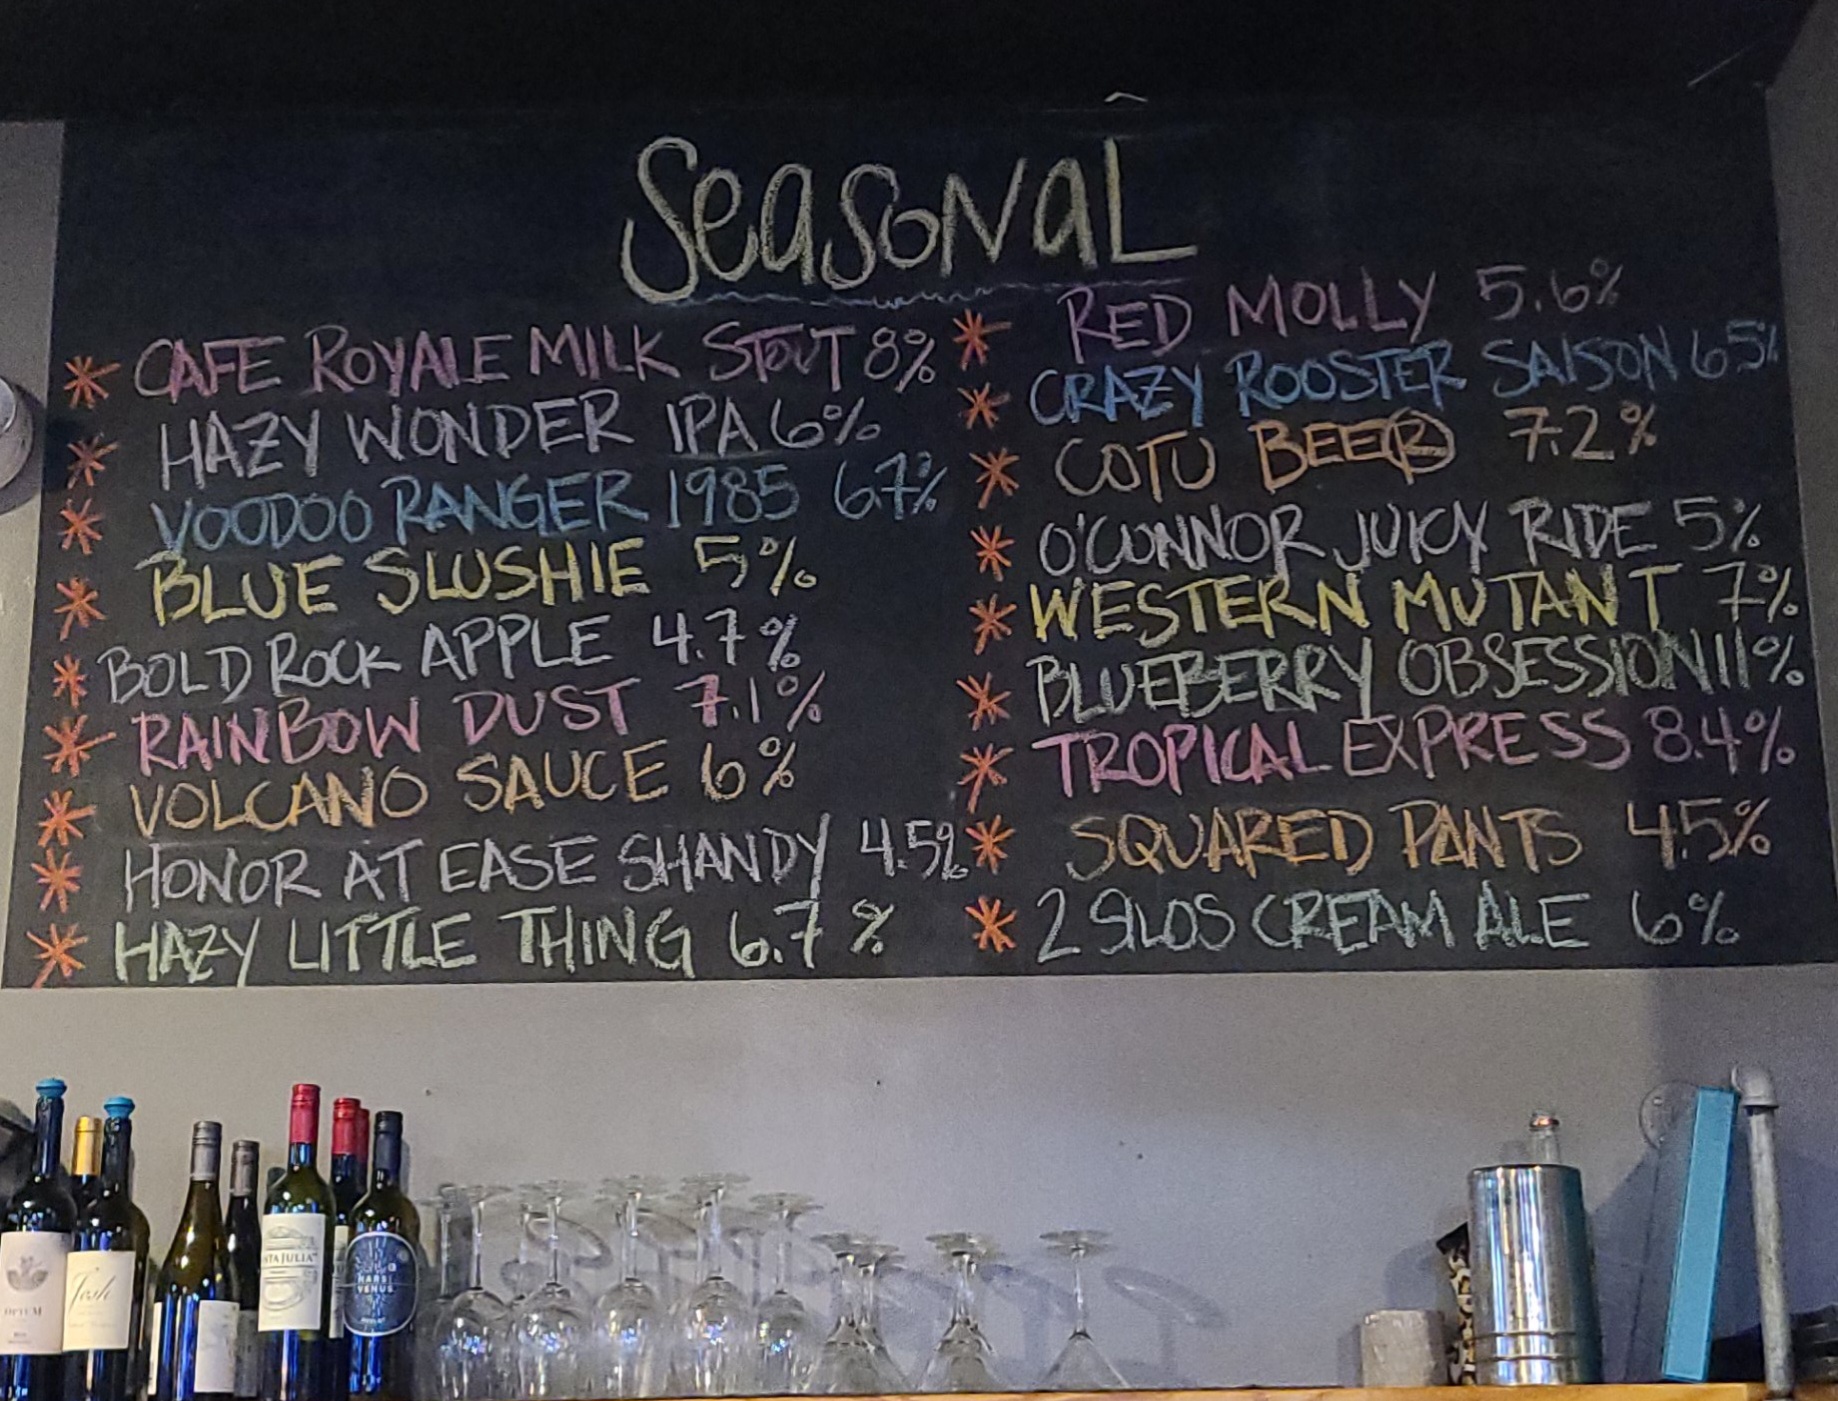 SEASONAL
CAFE ROYALE MILK STOUT 8%
HAZY WONDER IPA 6%
VOODOO RANGER 1985 6.7%
BLUE SLUSHIE 5%
BOLD ROCK APPLE 4.7%
RAINBOW DUST 7.1%
VOLCANO SAUCE 6%
HONOR AT EASE SHANDY 4.5%
HAZY LITTLE THING 6.7%
RED MOLLY 5.6%
CRAZY ROOSTER SAISON 6.5%
COTU BEER 7.2%
O'CONNOR JUICY RIDE 5%
WESTERN MUTANT 7%
BLUEBERRY OBSESSION 11%
TROPICAL EXPRESS 8.4%
SQUARED PANTS 4.5%
2 SILOS CREAM ALE 6%
OPIUM
Josh
TA JULIA
MARS
VENUS